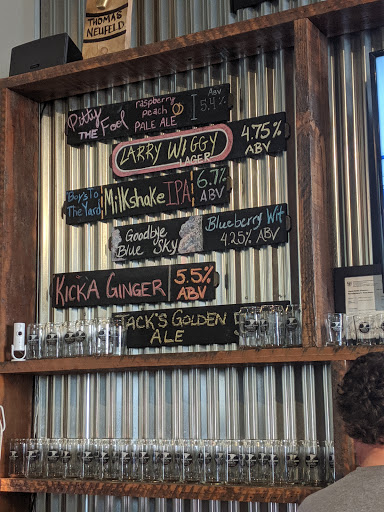 THOMAS
NEUFELD
Pitty
THE Fool
raspberry
peach
PALE ALE
ABV
5.4%
LARRY WIGGY
LAGER
4.75%
ABV
Boys To
The Yard
Milkshake IPA
6.7%
ABV
Goodbye
Blue Sky
Blueberry Wit
4.25% ABV
KICKA GINGER
5.5%
ABV
JACK'S GOLDEN
ALE